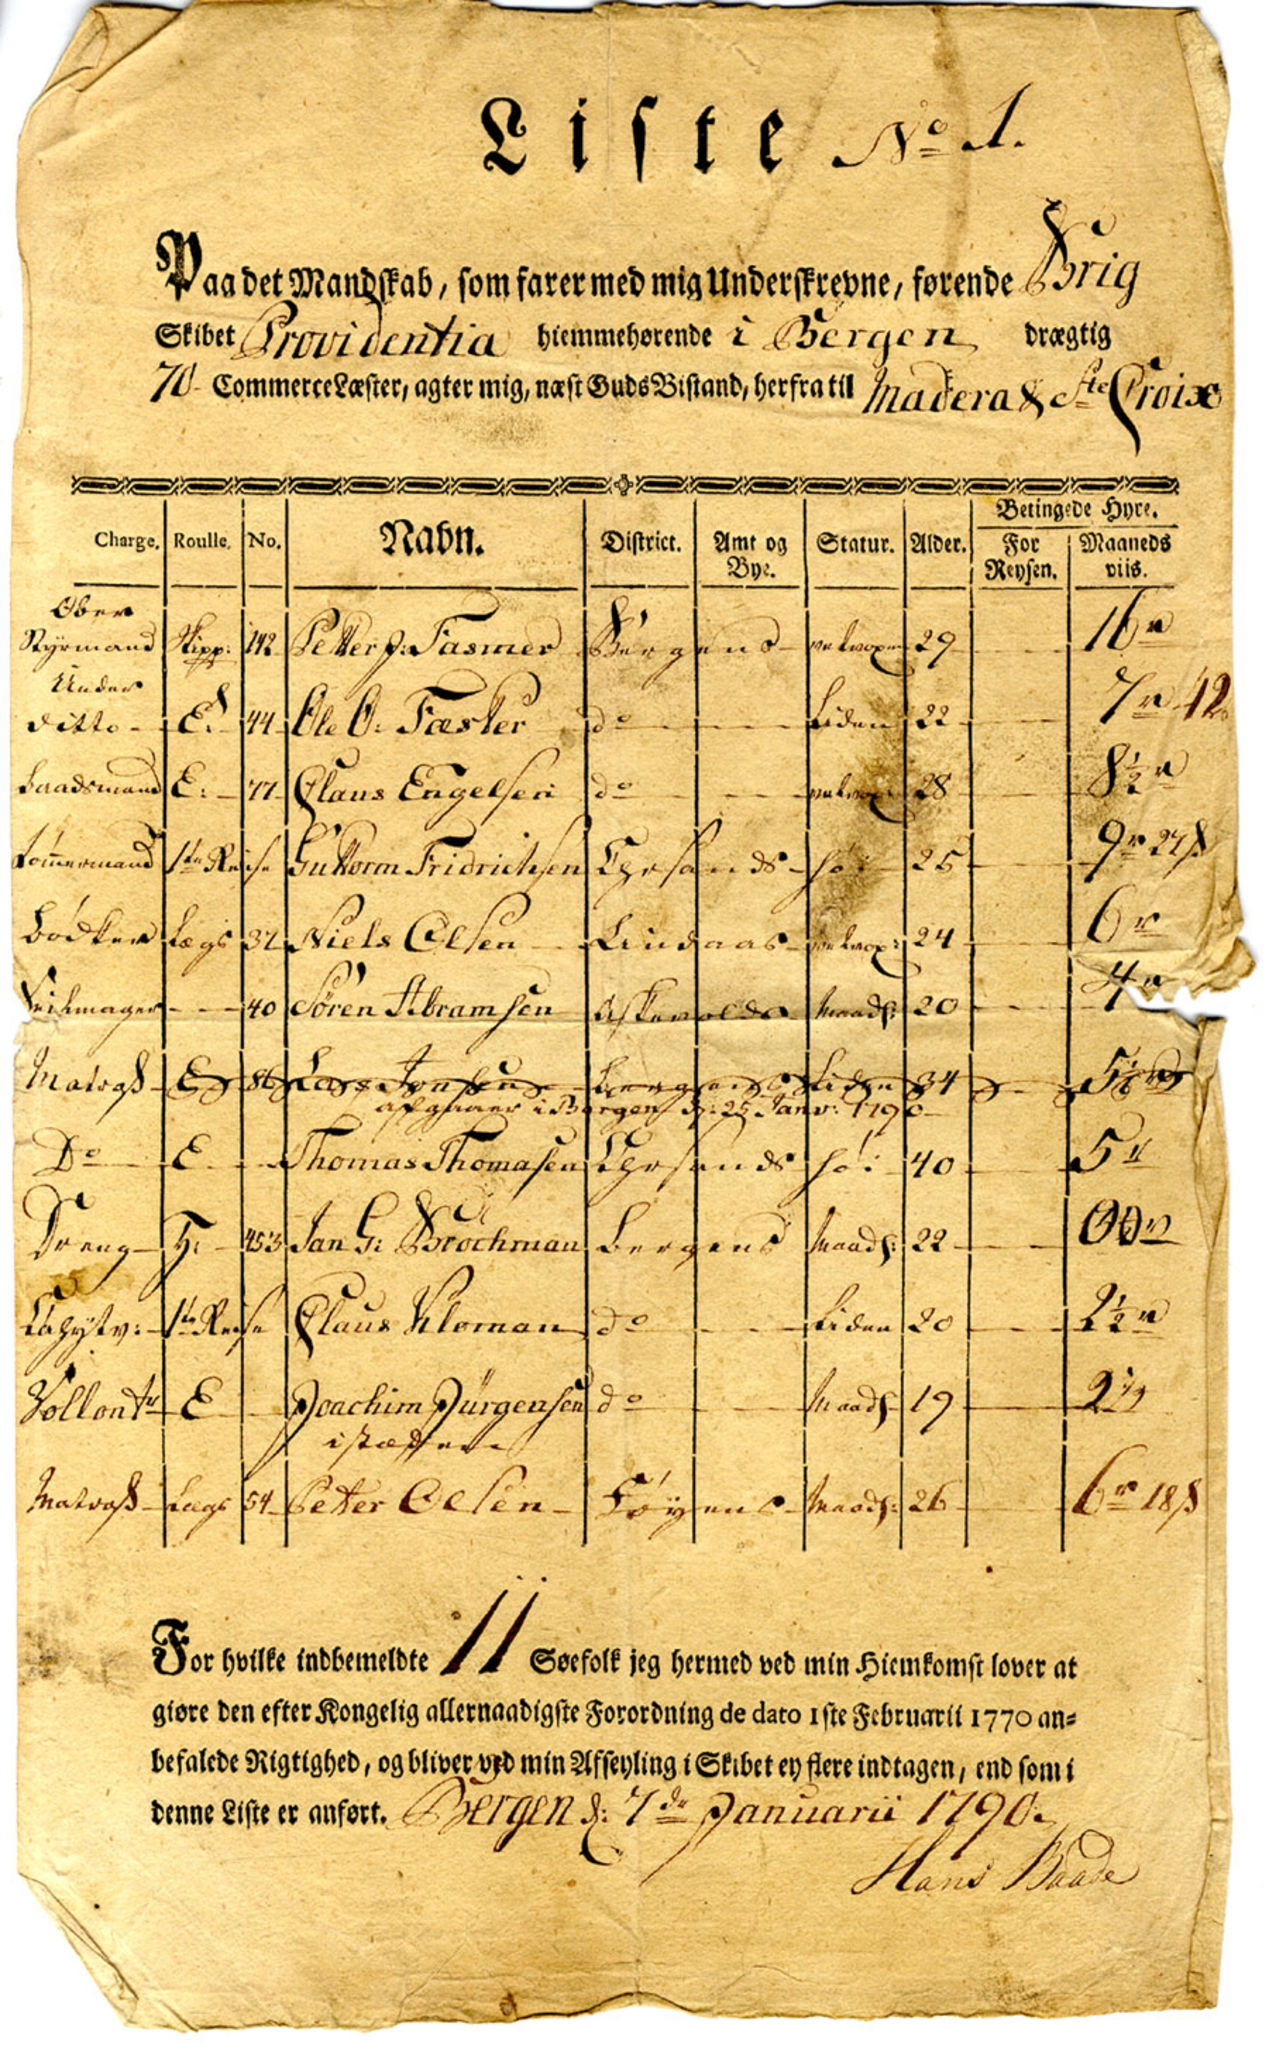 Liste No 1.
Paa det Mandskab, som farer med mig Underskrevne, førende Brig
Skibet Providentia hiemmehørende i Bergen drægtig
70 Commerce Læster, agter mig, næst Guds Bistand, herfra til Madera & Ste Croix
Betingede Hyre.
Charge. Roulle. No. Navn. District. Amt og Bye. Statur. Alder. For Reysen. Maaneds viis.
Ober
Styrmand Skipp: 142 Petter J: Fasmer Bergens 29 16 r
Under
ditto E: 44 Ole O: Fæster do Liden 22 7 r 42
Baadsmand E: 77 Claus Engelsen do 28 8½ r
Tømmermand 1te Reise Guttorm Fridrichsen Chrsands høi 25 9 r 24 ß
Bødker Lægs 37 Niels Olsen Lindaas 24 6 r
Seilmager 40 Søren Abramsen Askevolds Maads: 20 4 r
Matroß E 86 Lars Jonsen Bergens Liden 34 5½ r
afgaaer i Bergen d: 25 Janv: 1790
Do E Thomas Thomasen Chrsands høi 40 5 r
Dreng H: 453 Jan G: Brochman Bergens Maads: 22 00 r
Cahytv: 1te Reise Claus Kloman do Liden 20 2½ r
Vollontr E Joachim Jürgensen do Maads 19 2
i stæden
Matroß Lægs 54 Peter Oelsen Føyens Maads: 26 6 r 18 ß
For hvilke indbemeldte 11 Søefolk jeg hermed ved min Hiemkomst lover at
giøre den efter Kongelig allernaadigste Forordning de dato 1ste Februarii 1770 an=
befalede Rigtighed, og bliver ved min Afseyling i Skibet ey flere indtagen, end som i
denne Liste er anført. Bergen d: 7de Januarii 1790.
Hans Baade